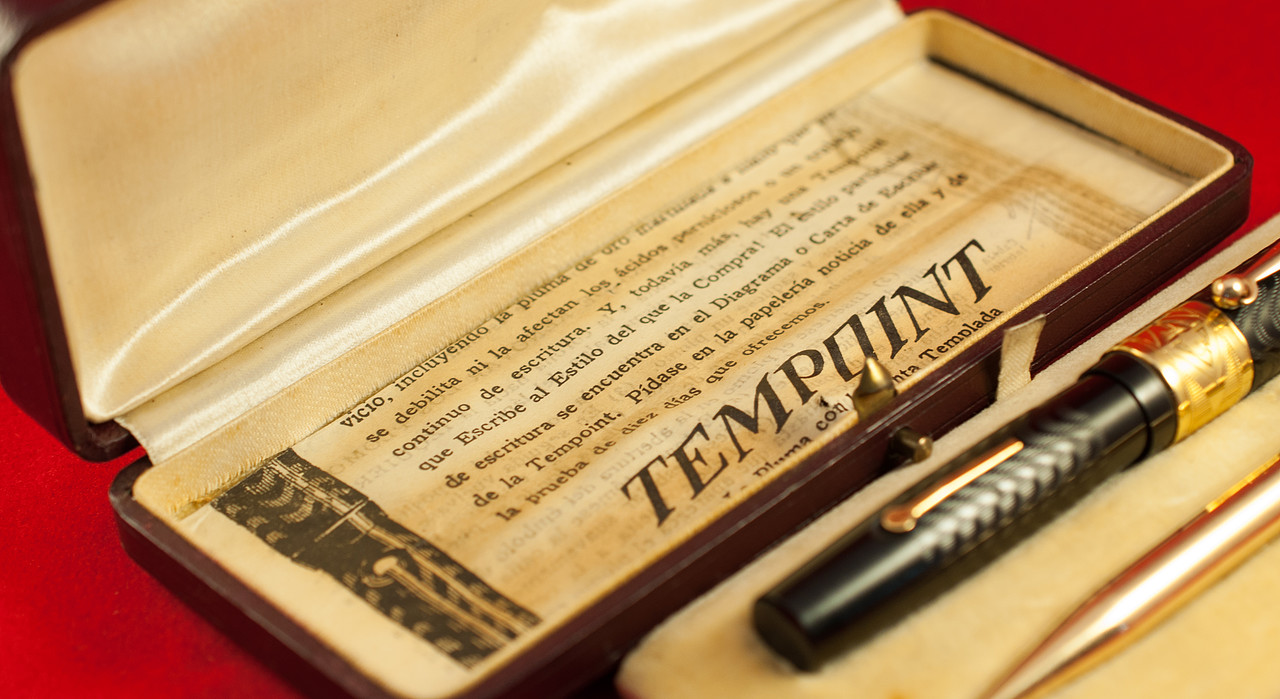 vicio, incluyendo la pluma de oro
se debilita ni la afectan los ácidos perniciosos o un trabajo
continuo de escritura. Y, todavía más, hay una
que Escribe al Estilo del que la Compra! El Estilo particular
de escritura se encuentra en el Diagrama o Carta de Escribir
de la Tempoint. Pídase en la papelería noticia de ella y de
la prueba de diez días que ofrecemos.
TEMPOINT
La Pluma con Templada